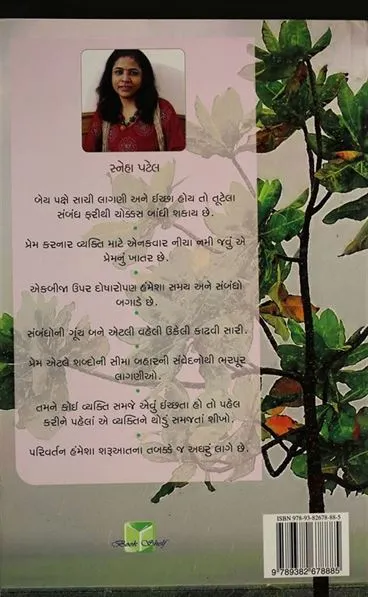 સ્નેહા પટેલ
બેય પક્ષે સાચી લાગણી અને ઈચ્છા હોય તો તૂટેલા
સંબંધ ફરીથી ચોક્કસ બાંધી શકાય છે.
પ્રેમ કરનાર વ્યક્તિ માટે એનકવાર નીચા નમી જવું એ
પ્રેમનું ખાતર છે.
એકબીજા ઉપર દોષારોપણ હંમેશા સમય અને સંબંધો
બગાડે છે.
સંબંધોની ગૂંચ બને એટલી વહેલી ઉકેલી કાઢવી સારી.
પ્રેમ એટલે શબ્દોની સીમા બહારની સંવેદનોથી ભરપૂર
લાગણીઓ.
તમને કોઈ વ્યક્તિ સમજે એવું ઈચ્છતા હો તો પહેલ
કરીને પહેલાં એ વ્યક્તિને થોડું સમજતાં શીખો.
પરિવર્તન હંમેશા શરૂઆતના તબક્કે જ અઘરું લાગે છે.
Book Shelf
ISBN 978-93-82678-88-5
9 789382 678885